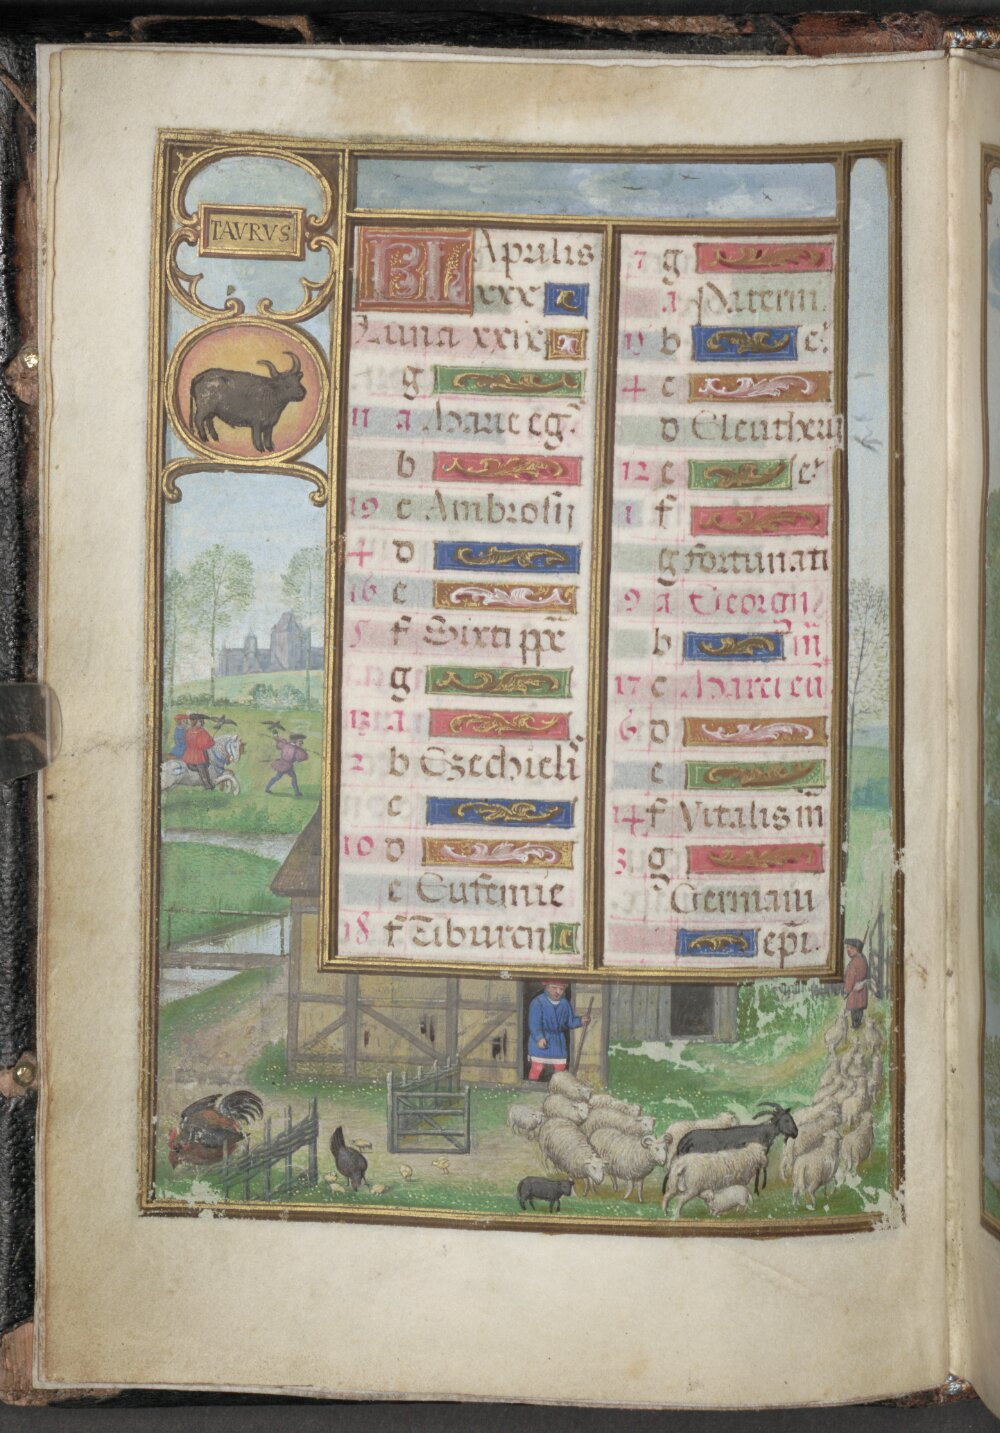 TAVRVS
KL Aprilis
xxx
Luna xxix
g
11 a Marie eg
b
19 c Ambrosij
4 d
16 e
5 f Sixti ppe
g
13 a
2 b Ezechieli
c
10 d
e Eufemie
18 f Tiburcii
7 g
a Paterni
15 b
4 c
d Eleutherij
12 e
1 f
g fortunati
9 a Georgij
b m
17 c Marci eu
6 d
e
14 f Vitalis m
3 g
Germani
epi.